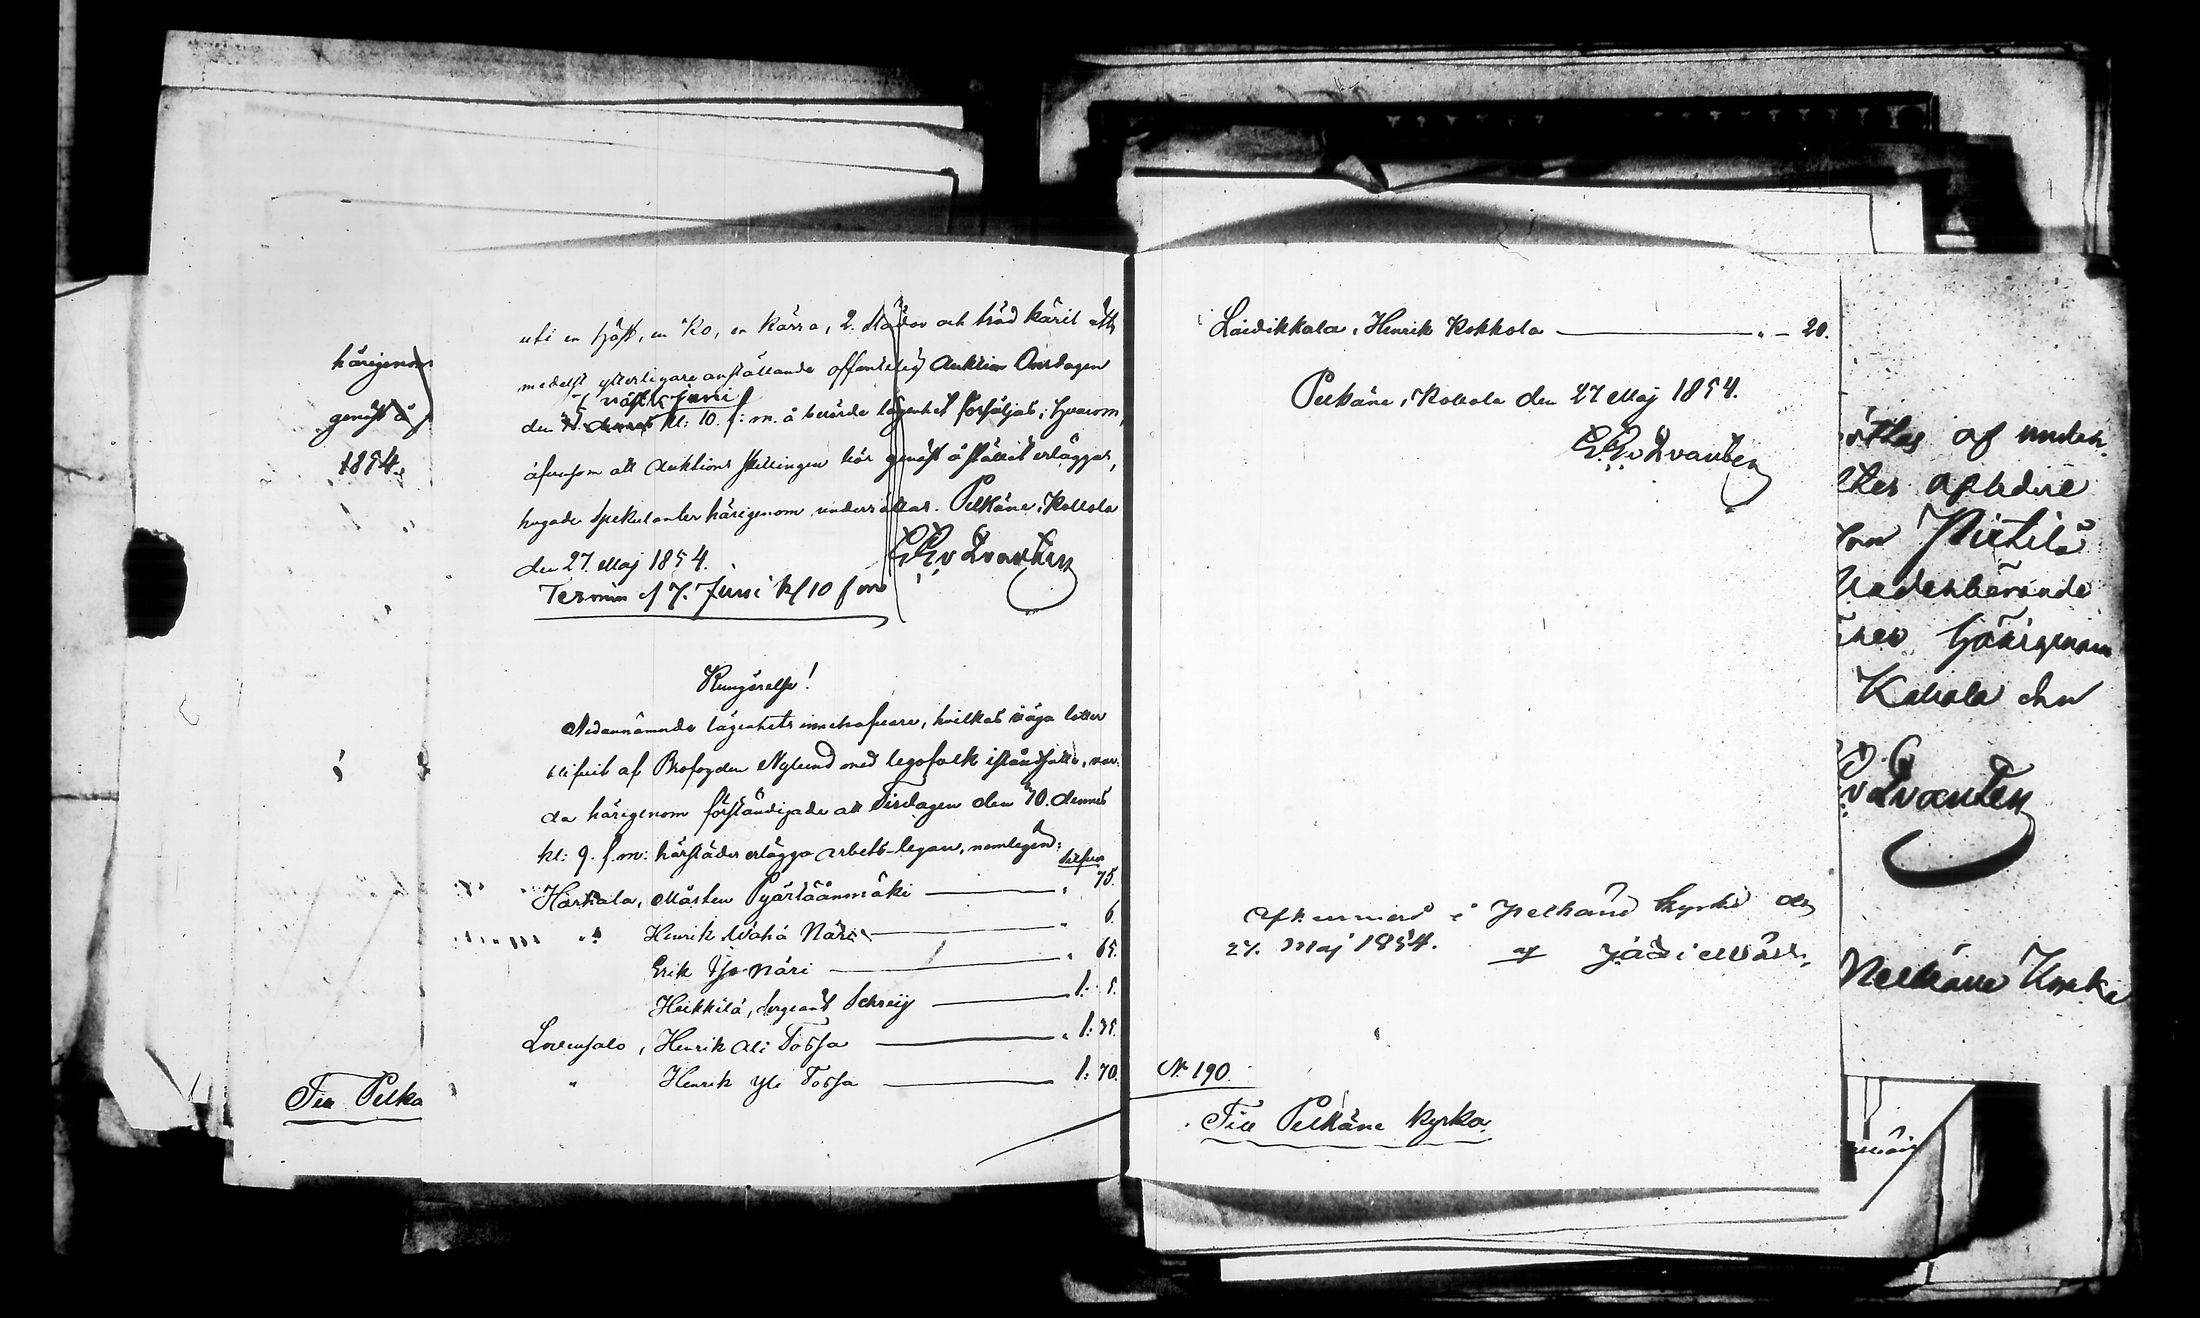 härigenom
genast å
1854.
Till Pelkä
uti en häst, en Ko, en Kärra, 2. Slädor och träd käril att
medelst ytterligare anställande offentelig Auktion Onsdagen
7 nästk. Juni
den kl: 10. f: m. å berörde lägenhet försäljas; hvarom,
äfvensom att Auktions skillingen bör genast å stället erläggas,
hugade spekulanter härigenom underrättas. Pelkäne, Kollola
den 27. Maj 1854.
Termin d 7. Juni kl 10 f m
Kungörelse!
Nedannämnde lägenhets innehafvare, hvilkas väga lotter
blifvit af Brofogden Nylund med legofolk iståndsatte, var-
da härigenom förständigade att Tisdagen den 30. dennes
kl: 9. f. m: härstädes erlägga arbets-legan, nemligen:
Silfver
Harhala, Mårten Pyärtäänmäki — " 75.
" Henrik Wähä Näri — " 6.
Erik Iso Näri — " 65.
Heikkilä, Sergeant Schreij — 1: 5.
Lovensalo, Henrik Ali Tossa — 1: 35.
" Henrik Yli Tossa — 1: 70.
Laidikkala, Henrik Kokkola — " — 20.
Pelkäne, Kollola den 27 Maj 1854.
i Pelkäne kyrka den
27. Maj 1854. af
N. 190.
Till Pelkäne Kyrka.
af unden-
Pirtilä
härigenom
Kollola den
Pelkäne Kyrka